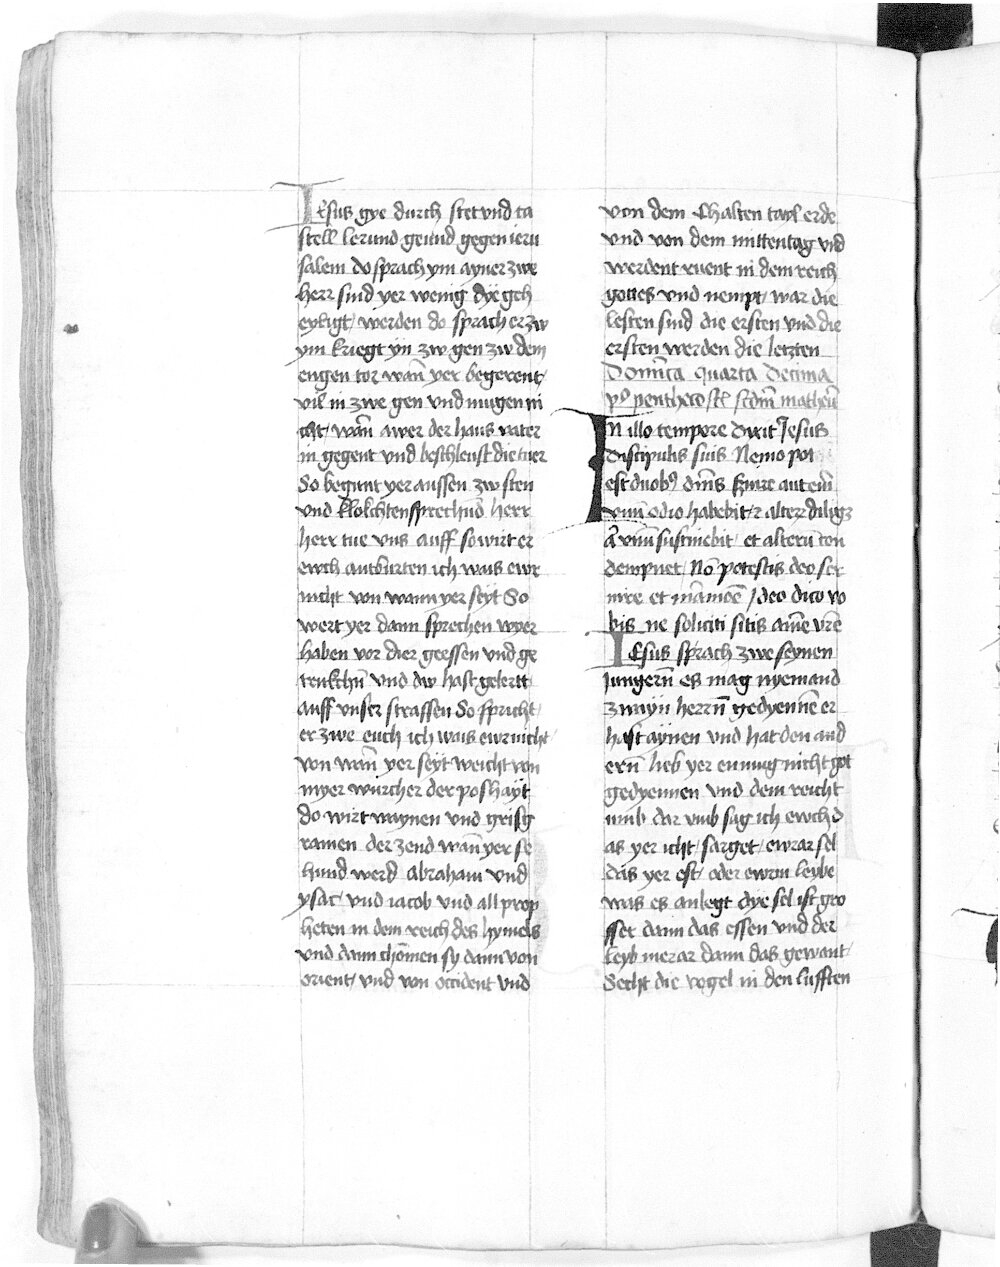 Jesus gye durch stet vnd ca
stell lerund geund gegen ieru
salem do sprach ym ayner zwe
herr sind yer wenig dye geh
eyligt werden do sprach er zw
ym kriegt yn zw gen zw dem
engen tor wan̄ yer begerent
vil in zwe gen vnd mugen ni
cht / wan̄ awer der haus vater
in gegent vnd beschleust die tuer
So begint yer aussen zw sten
vnd klokchten sprechund herr
herr tue vns auff so wirt er
ewch antburten ich wais ewr
nicht von wann yer seyt So
wert yer dann sprechen wyer
haben vor dier geessen vnd ge
trukchn̄ vnd dw hast gelertt
auff vnser strassen So spricht
er zwe euch ich wais ewr nicht
von wan̄ yer seyt weicht von
myer wurcher der poshayt
do wirt waynen vnd grisg
ramen der zend wan̄ yer se
hund werd abraham vnd
ysac / vnd iacob vnd all prop
heten in dem reich des hymels
vnd dann chomen sy dann von
orient / vnd von occident vnd
von dem chalten tayl erde
vnd von dem mittentag vnd
werdent ruent in dem reich
gottes vnd nempt war die
lesten sind die ersten vnd die
ersten werden die letzten
Domīca quarta decima
pꝰ penthecosten scdm̄ matheū
In illo tempore dixit Jesus
discipulis suis Nemo pot
est duobꝰ dn̄is seruire aut enī
vnū odio habebit ⁊ alter dilig3
aut vnū sustinebit et alterū con
dempnet No̅ potestis deo ser
uire et mamōe / Ideo dico vo
bis ne soliciti sitis anīe vr̄e
Jesus sprach zwe seynen
Jungern̄ es mag nyemand
zwayn̄ herrn̄ gedyennē er
hast aynen vnd hat den and
ern̄ lieb yer en mug nicht got
gedyennen vnd dem reicht
umb dar vmb sag ich ewch d
as yer icht sarget ewrar sel
das yer est / oder ewrm leybe
was es anlegt dye sel ist gro
sser dann das essen vnd der
leyb merar dann das gewant
Secht die vogel in den lufften